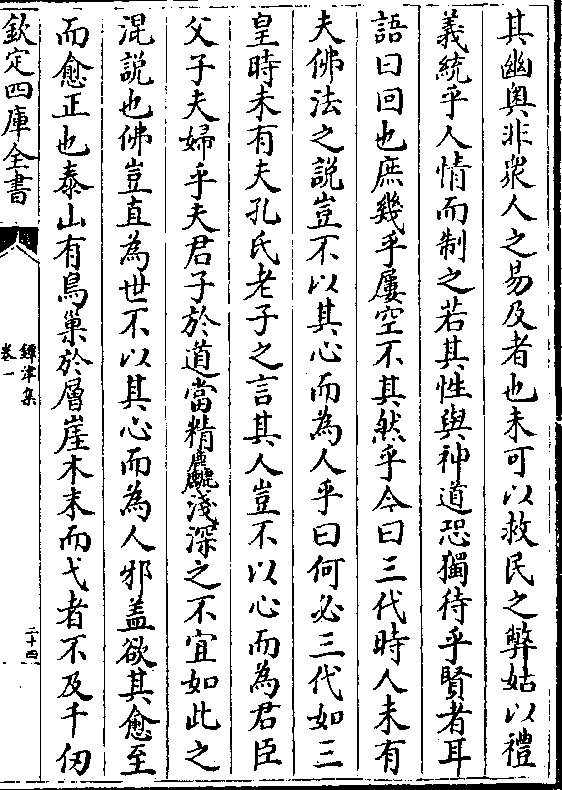 其幽奥非衆人之易及者也未可以救民之弊姑以禮
義統乎人情而制之若其性與神道恐獨待乎賢者耳
語曰回也庶幾乎屢空不其然乎今曰三代時人未有
夫佛法之說豈不以其心而為人乎曰何必三代如三
皇時未有夫孔氏老子之言其人豈不以心而為君臣
父子夫婦乎夫君子於道當精麤淺深之不宜如此之
混說也佛豈直為世不以其心而為人邪盖欲其愈至
而愈正也泰山有鳥巢於層崖木末而弋者不及千仞
欽定四庫全書
鐔津集
卷一
二十四